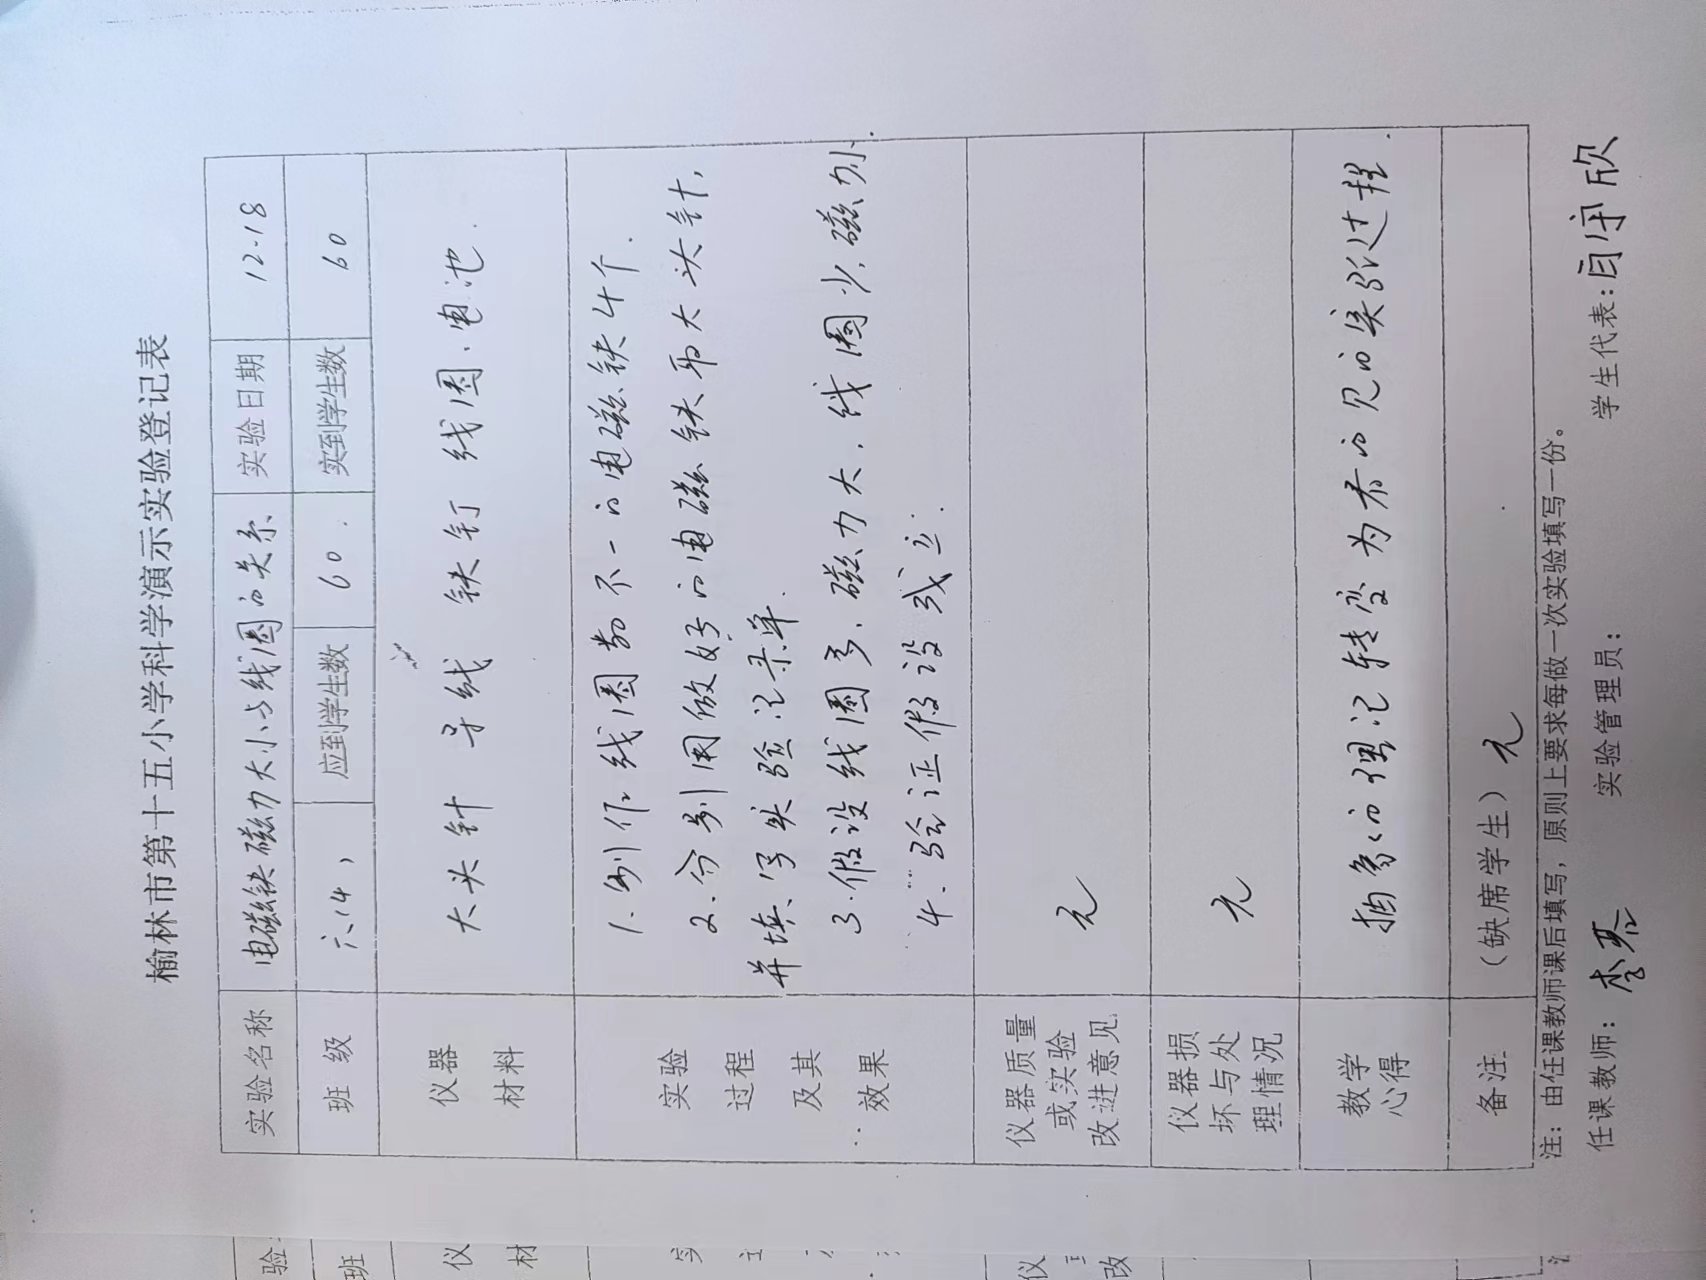 榆林市第十五小学科学演示实验登记表
实验名称 电磁铁磁力大小与线圈的关系 实验日期 12-18
班 级 六(4) 应到学生数 60 实到学生数 60
仪器 材料 大头针 导线 铁钉 线圈、电池.
实验 过程 及其 效果
1.制作线圈数不一的电磁铁4个.
2.分别用做好的电磁铁吊大头针,
并填写实验记录单.
3.假设线圈多,磁力大,线圈少,磁力小.
4.验证假设成立.
仪器质量
或实验
改进意见 无
仪器损
坏与处
理情况 无
教学
心得 抽象的理论转变为看的见的实验过程.
备注 (缺席学生) 无
注:由任课教师课后填写,原则上要求每做一次实验填写一份。
任课教师: 实验管理员: 学生代表: